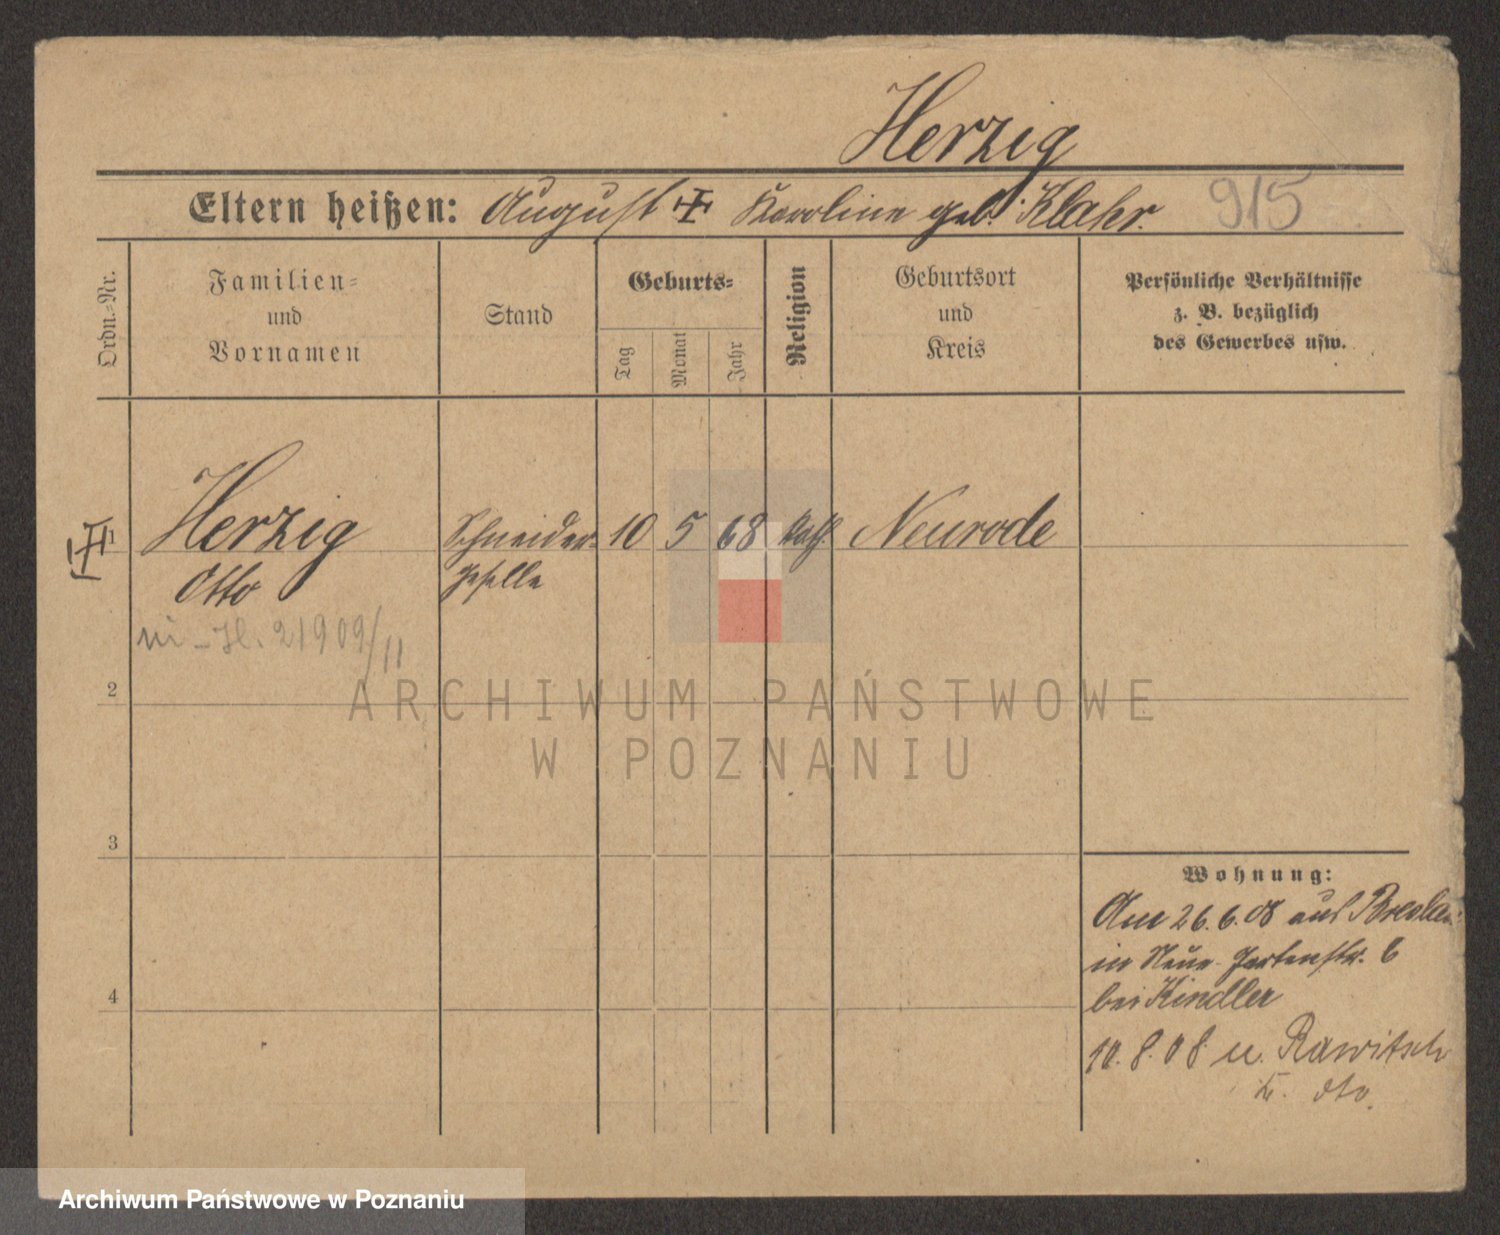 Herzig
Eltern heißen: August Karoline geb. Klahr. 915
Ordn.-Nr.
Familien-
und
Vornamen
Stand
Geburts-
Tag
Monat
Jahr
Religion
Geburtsort
und
Kreis
Persönliche Verhältnisse
z. B. bezüglich
des Gewerbes usw.
1 Herzig Schneider- 10 5 68 kath. Neurode
Otto geselle
21909/11
2
ARCHIWUM PAŃSTWOWE
W POZNANIU
3
Wohnung:
Am 26.6.08 aus Breslau
in Neue Gartenstr. 6
bei Kindler
4
10.8.08 u. Rawitsch
Kr. dto.
Archiwum Państwowe w Poznaniu